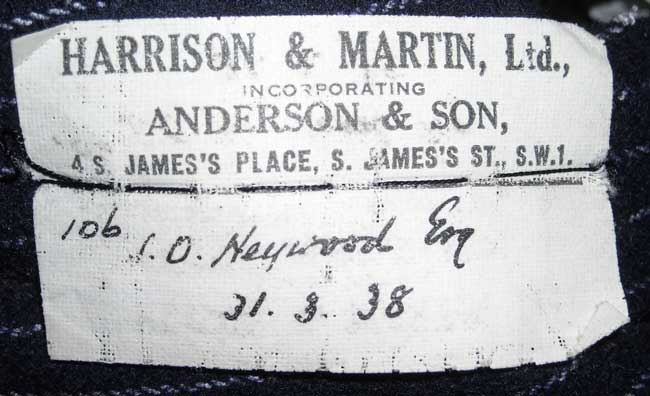 HARRISON & MARTIN, Ltd.,
INCORPORATING
ANDERSON & SON,
4 S. JAMES'S PLACE, S. JAMES'S ST., S.W.1.
106 J. O. Heywood Esq
31. 3. 38